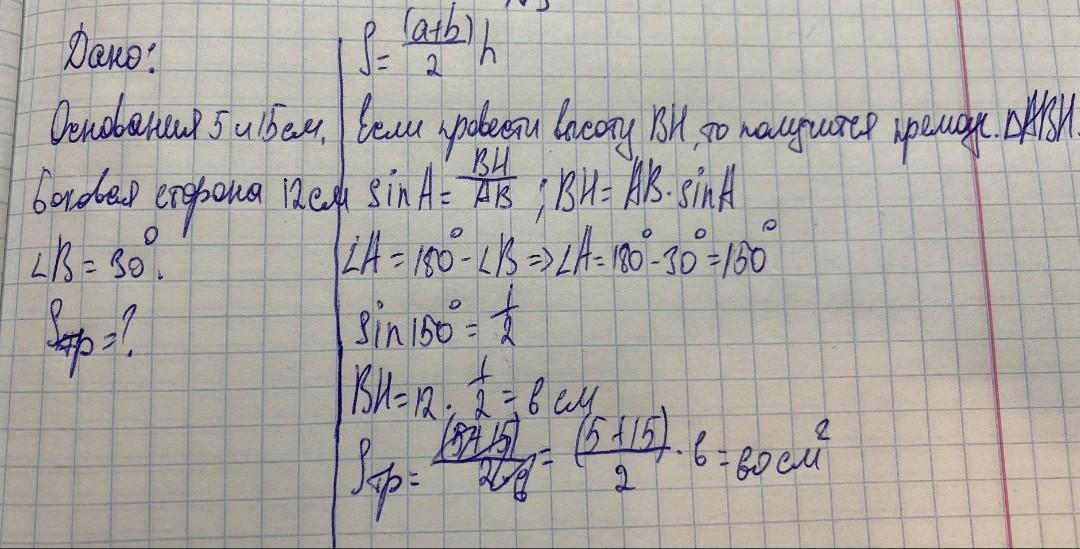 Дано:
Основания 5 и 15 см.
Боковая сторона 12 см
∠B = 30°.
Sтр = ?
S = (a+b)/2 h
Если провести высоту BH, то получится прямоуг. ΔABH.
sin A = BH/AB ; BH = AB · sin A
∠A = 180° - ∠B => ∠A = 180° - 30° = 150°
sin 150° = 1/2
BH = 12 · 1/2 = 6 см
Sтр = (5+15)/2 · 6 = (5+15)/2 · 6 = 60 см²